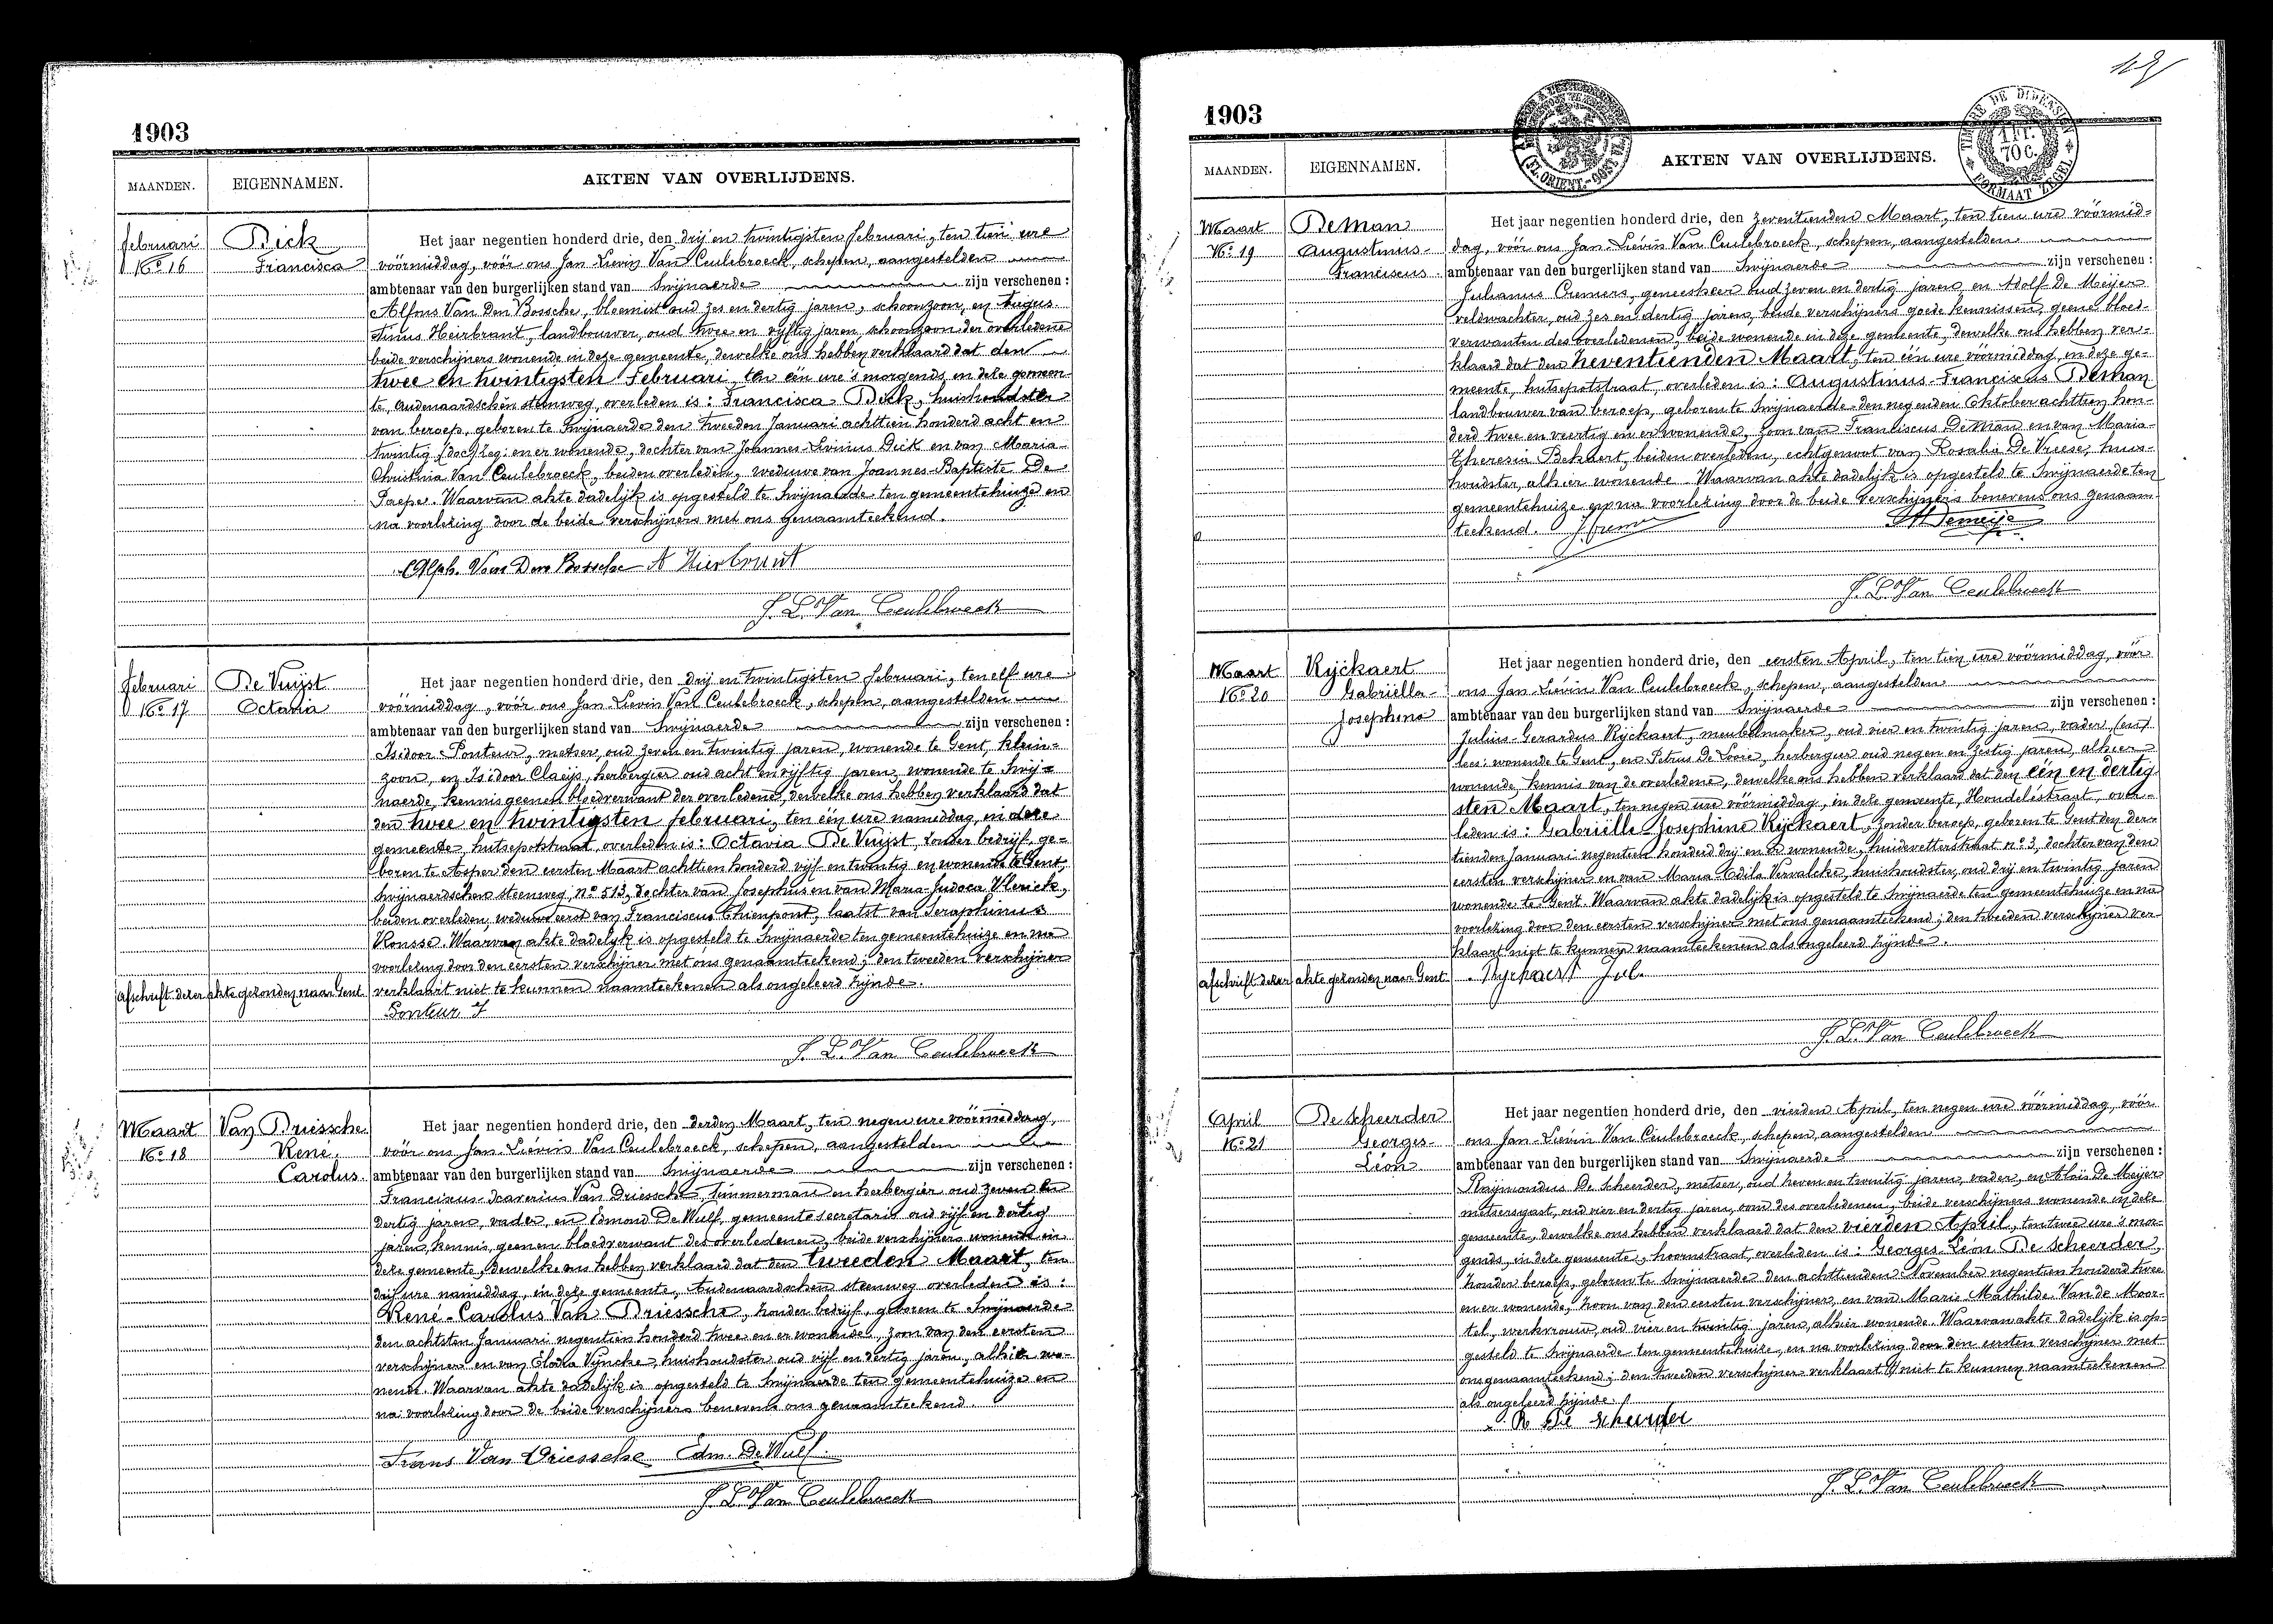 1903
MAANDEN. EIGENNAMEN. AKTEN VAN OVERLIJDENS.
februari
No 16
Dick
Francisca
Het jaar negentien honderd drie, den drij en twintigsten februari, ten tien ure
vóórmiddag, vóór ons Jan Lievin Van Ceulebroeck, schepen, aangestelden
ambtenaar van den burgerlijken stand van Swijnaerde zijn verschenen :
Alfons Van Den Bossche, bloemist oud zes en dertig jaren, schoonzoon, en Augus-
tinus Heirbrant, landbouwer, oud twee en vijftig jaren, schoonzoon der overledene
beide verschijners wonende in deze gemeente, dewelke ons hebben verklaard dat den
twee en twintigsten Februari, ten één ure 's morgends, in deze gemeen-
te, Audenaardschen steenweg, overleden is : Francisca Dick, huishoudster
van beroep, geboren te Swijnaerde den tweeden Januari achttien honderd acht en
twintig en er wonende, dochter van Joannes-Livinus Dick en van Maria-
Christina Van Ceulebroeck, beiden overleden, weduwe van Joannes-Baptiste De
Paepe. Waarvan akte dadelijk is opgesteld te Swijnaerde ten gemeentehuize en
na voorlezing door de beide verschijners met ons genaamteekend.
Alph. Van Den Bossche A Hierbrant
J. L. Van Ceulebroeck
februari
No 17
De Vuijst
Octavia
Het jaar negentien honderd drie, den drij en twintigsten februari, ten elf ure
vóórmiddag, vóór ons Jan Lievin Van Ceulebroeck, schepen, aangestelden
ambtenaar van den burgerlijken stand van Swijnaerde zijn verschenen :
Isidoor Ponteur, metser, oud zeven en twintig jaren, wonende te Gent, klein-
zoon, en Isidoor Claeijs, herbergier oud acht en vijftig jaren, wonende te Swij-
naerde, kennis geenen bloedverwant der overledene, dewelke ons hebben verklaard dat
den twee en twintigsten februari, ten één ure namiddag, in deze
gemeente, hutsepotstraat, overleden is : Octavia De Vuijst, zonder bedrijf, ge-
boren te Asper den eersten Maart achttien honderd vijf en twintig en wonende te Gent,
Swijnaerdschen steenweg, no 513, dochter van Josephus en van Maria-Judoca Vlerick,
beiden overleden, weduwe eerst van Franciscus Thienpont, laatst van Seraphinus
Rousse. Waarvan akte dadelijk is opgesteld te Swijnaerde ten gemeentehuize en na
voorlezing door den eersten verschijner met ons genaamteekend; den tweeden verschijner
verklaart niet te kunnen naamteekenen als ongeleerd zijnde.
afschrift dezer akte gezonden naar Gent.
Ponteur I
J. L. Van Ceulebroeck
Maart
No 18
Van Driessche
René
Carolus.
Het jaar negentien honderd drie, den derden Maart, ten negen ure vóórmiddag,
vóór ons Jan Liévin Van Ceulebroeck, schepen, aangestelden
ambtenaar van den burgerlijken stand van Swijnaerde zijn verschenen :
Franciscus-Xaverius Van Driessche, timmerman en herbergier oud zeven en
dertig jaren, vader, en Edmond De Wulf, gemeentesecretaris oud vijf en dertig
jaren, kennis, geenen bloedverwant des overledenen, beide verschijners wonende in
deze gemeente, dewelke ons hebben verklaard dat den tweeden Maart, ten
drij ure namiddag, in deze gemeente, Audenaardschen steenweg overleden is :
René-Carolus Van Driessche, zonder bedrijf, geboren te Swijnaerde
den achtsten Januari negentien honderd twee en er wonende, zoon van den eersten
verschijner en van Elodia Vijncke, huishoudster oud vijf en dertig jaren, alhier wo-
nende. Waarvan akte dadelijk is opgesteld te Swijnaerde ten gemeentehuize en
na voorlezing door de beide verschijners benevens ons genaamteekend.
Frans Van Driessche Edm. De Wulf.
J. L. Van Ceulebroeck
1903
TIMBRE DE DIMENSION
1 FR. 70 C.
FORMAAT ZEGEL
MAANDEN. EIGENNAMEN. AKTEN VAN OVERLIJDENS.
Maart
No 19
De Man
Augustinus-
Franciscus.
Het jaar negentien honderd drie, den zeventienden Maart, ten tien ure vóórmid-
dag, vóór ons Jan-Liévin Van Ceulebroeck, schepen, aangestelden
ambtenaar van den burgerlijken stand van Swijnaerde zijn verschenen :
Julianus Cremers, geneesheer oud zeven en dertig jaren en Adolf De Meijer
veldwachter, oud zes en dertig jaren, beide verschijners goede kennissen, geene bloed-
verwanten des overledenen, beide wonende in deze gemeente, dewelke ons hebben ver-
klaard dat den zeventienden Maart, ten één ure vóórmiddag, in deze ge-
meente, hutsepotstraat, overleden is : Augustinus-Franciscus Deman
landbouwer van beroep, geboren te Swijnaerde den negenden Oktober achttien hon-
derd twee en veertig en er wonende, zoon van Franciscus DeMan en van Maria-
Theresia Bekaert, beiden overleden, echtgenoot van Rosalia De Vreese, huis-
houdster, alhier wonende. Waarvan akte dadelijk is opgesteld te Swijnaerde ten
gemeentehuize en na voorlezing door de beide verschijners benevens ons genaam-
teekend.
J. L. Van Ceulebroeck
Maart
No 20
Rijckaert
Gabriëlla-
Josephina
Het jaar negentien honderd drie, den eersten April, ten tien ure vóórmiddag, vóór
ons Jan-Liévin Van Ceulebroeck, schepen, aangestelden
ambtenaar van den burgerlijken stand van Swijnaerde zijn verschenen :
Julius-Gerardus Rijckaert, meubelmaker, oud vier en twintig jaren, vader, (en)
lees: wonende te Gent, en Petrus De Looze, herbergier oud negen en zestig jaren, alhier
wonende, kennis van de overledene, dewelke ons hebben verklaard dat den één en dertig-
sten Maart, ten negen ure vóórmiddag, in deze gemeente, Hondelestraat, over-
leden is : Gabriëlle-Josephine Rijckaert, zonder beroep, geboren te Gent den der-
tienden Januari negentien honderd drij en er wonende, huidevetterstraat no 3, dochter van den
eersten verschijner en van Maria Odila Vervalcke, huishoudster, oud drij en twintig jaren
wonende te Gent. Waarvan akte dadelijk is opgesteld te Swijnaerde ten gemeentehuize en na
voorlezing door den eersten verschijner met ons genaamteekend; den tweeden verschijner ver-
klaart niet te kunnen naamteekenen als ongeleerd zijnde.
afschrift dezer akte gezonden naar Gent.
Ryckaert Jul.
J. L. Van Ceulebroeck
April
No 21
De Scheerder
Georges-
Léon
Het jaar negentien honderd drie, den vierden April, ten negen ure vóórmiddag, vóór
ons Jan-Liévin Van Ceulebroeck, schepen, aangestelden
ambtenaar van den burgerlijken stand van Swijnaerde zijn verschenen :
Raijmondus De Scheerder, metser, oud zeven en twintig jaren, vader, en Aloïs De Meijer
metsersgast, oud vier en dertig jaren, oom des overledenen, beide verschijners wonende in deze
gemeente, dewelke ons hebben verklaard dat den vierden April, ten twee ure 's mor-
gends, in deze gemeente, hoornstraat, overleden is : Georges-Léon De Scheerder,
zonder beroep, geboren te Swijnaerde den achttienden November negentien honderd twee
en er wonende, zoon van den eersten verschijner, en van Marie Mathilde Van de Moor-
tel, werkvrouw, oud vier en twintig jaren, alhier wonende. Waarvan akte dadelijk is op-
gesteld te Swijnaerde ten gemeentehuize, en na voorlezing door den eersten verschijner met
ons genaamteekend; den tweeden verschijner verklaart niet te kunnen naamteekenen
als ongeleerd zijnde.
R De Scheerder
J. L. Van Ceulebroeck